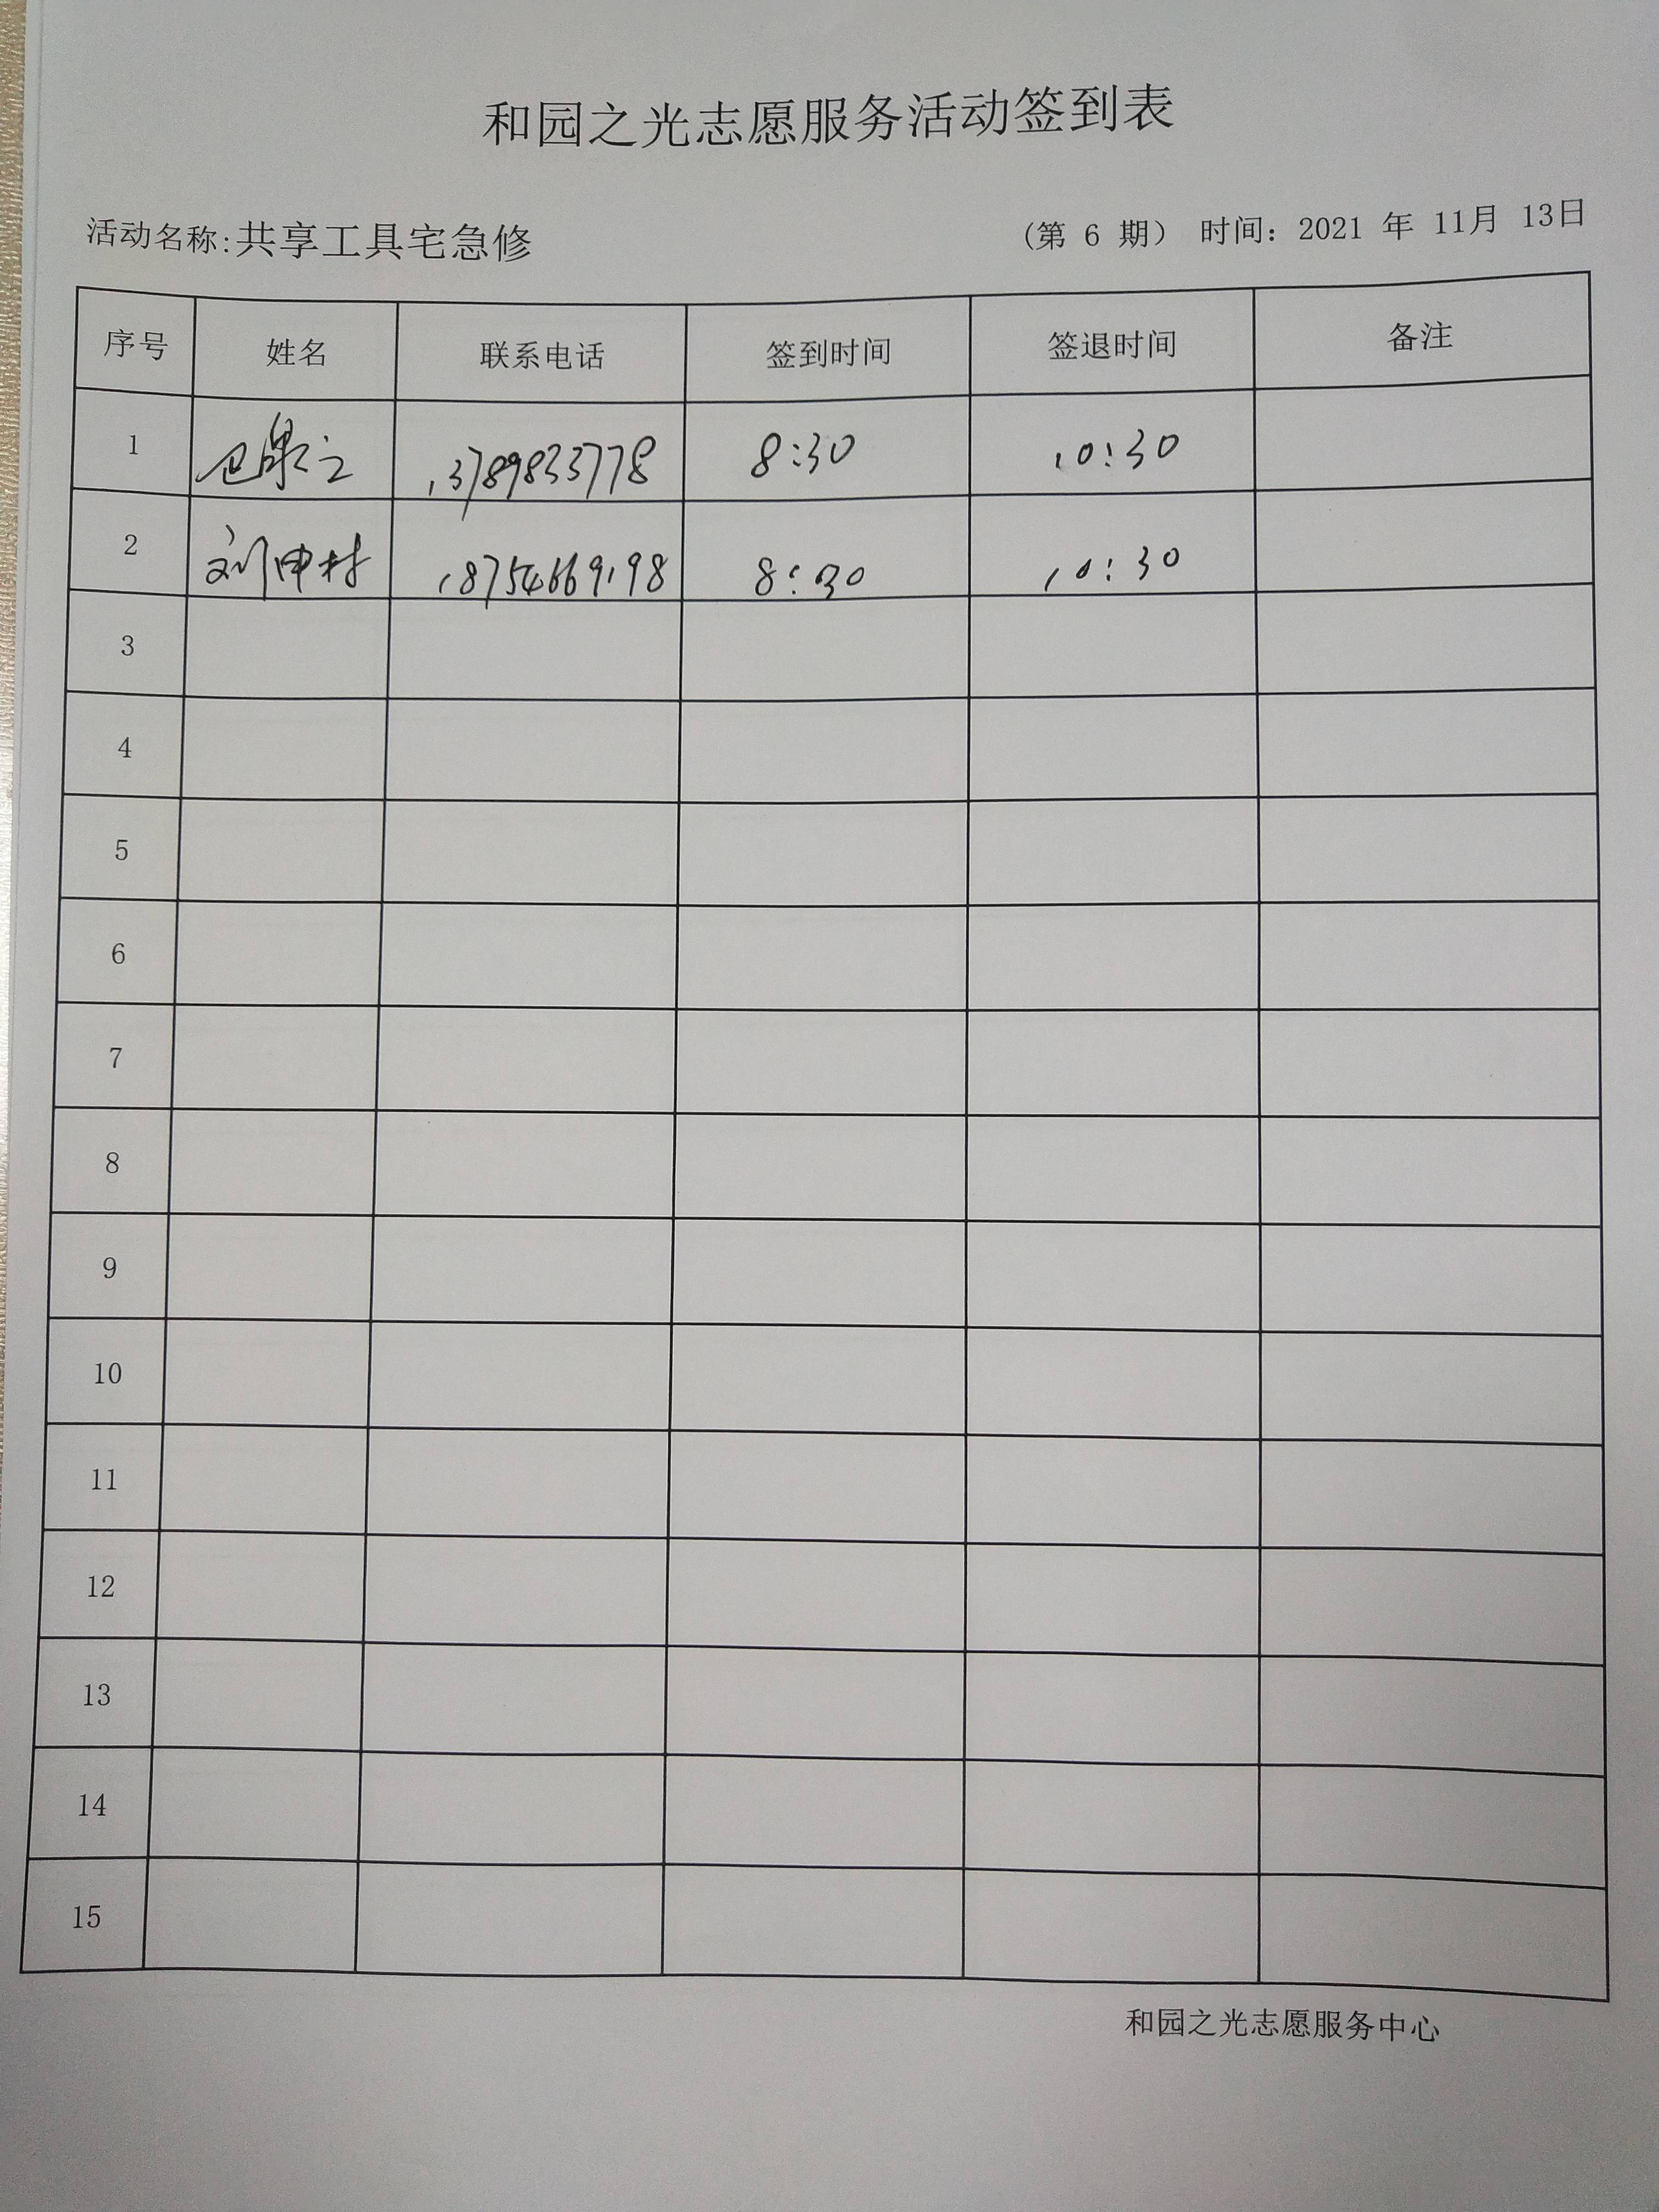 和园之光志愿服务活动签到表
活动名称:共享工具宅急修 (第 6 期) 时间: 2021 年 11月 13日
序号 姓名 联系电话 签到时间 签退时间 备注
1 13789833778 8:30 10:30
2 刘申村 18754669198 8:30 10:30
3
4
5
6
7
8
9
10
11
12
13
14
15
和园之光志愿服务中心